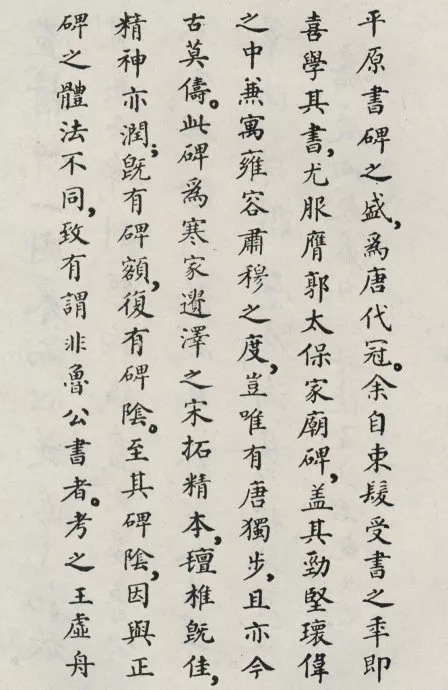 平原書碑之盛，爲唐代冠。余自束髮受書之年即
喜學其書，尤服膺郭太保家廟碑，盖其勁堅瓌偉
之中兼寓雍容肅穆之度，豈唯有唐獨步，且亦今
古莫儔。此碑爲寒家遺澤之宋拓精本，氊椎既佳，
精神亦潤；既有碑額，復有碑陰。至其碑陰，因與正
碑之體法不同，致有謂非魯公書者。考之王虛舟